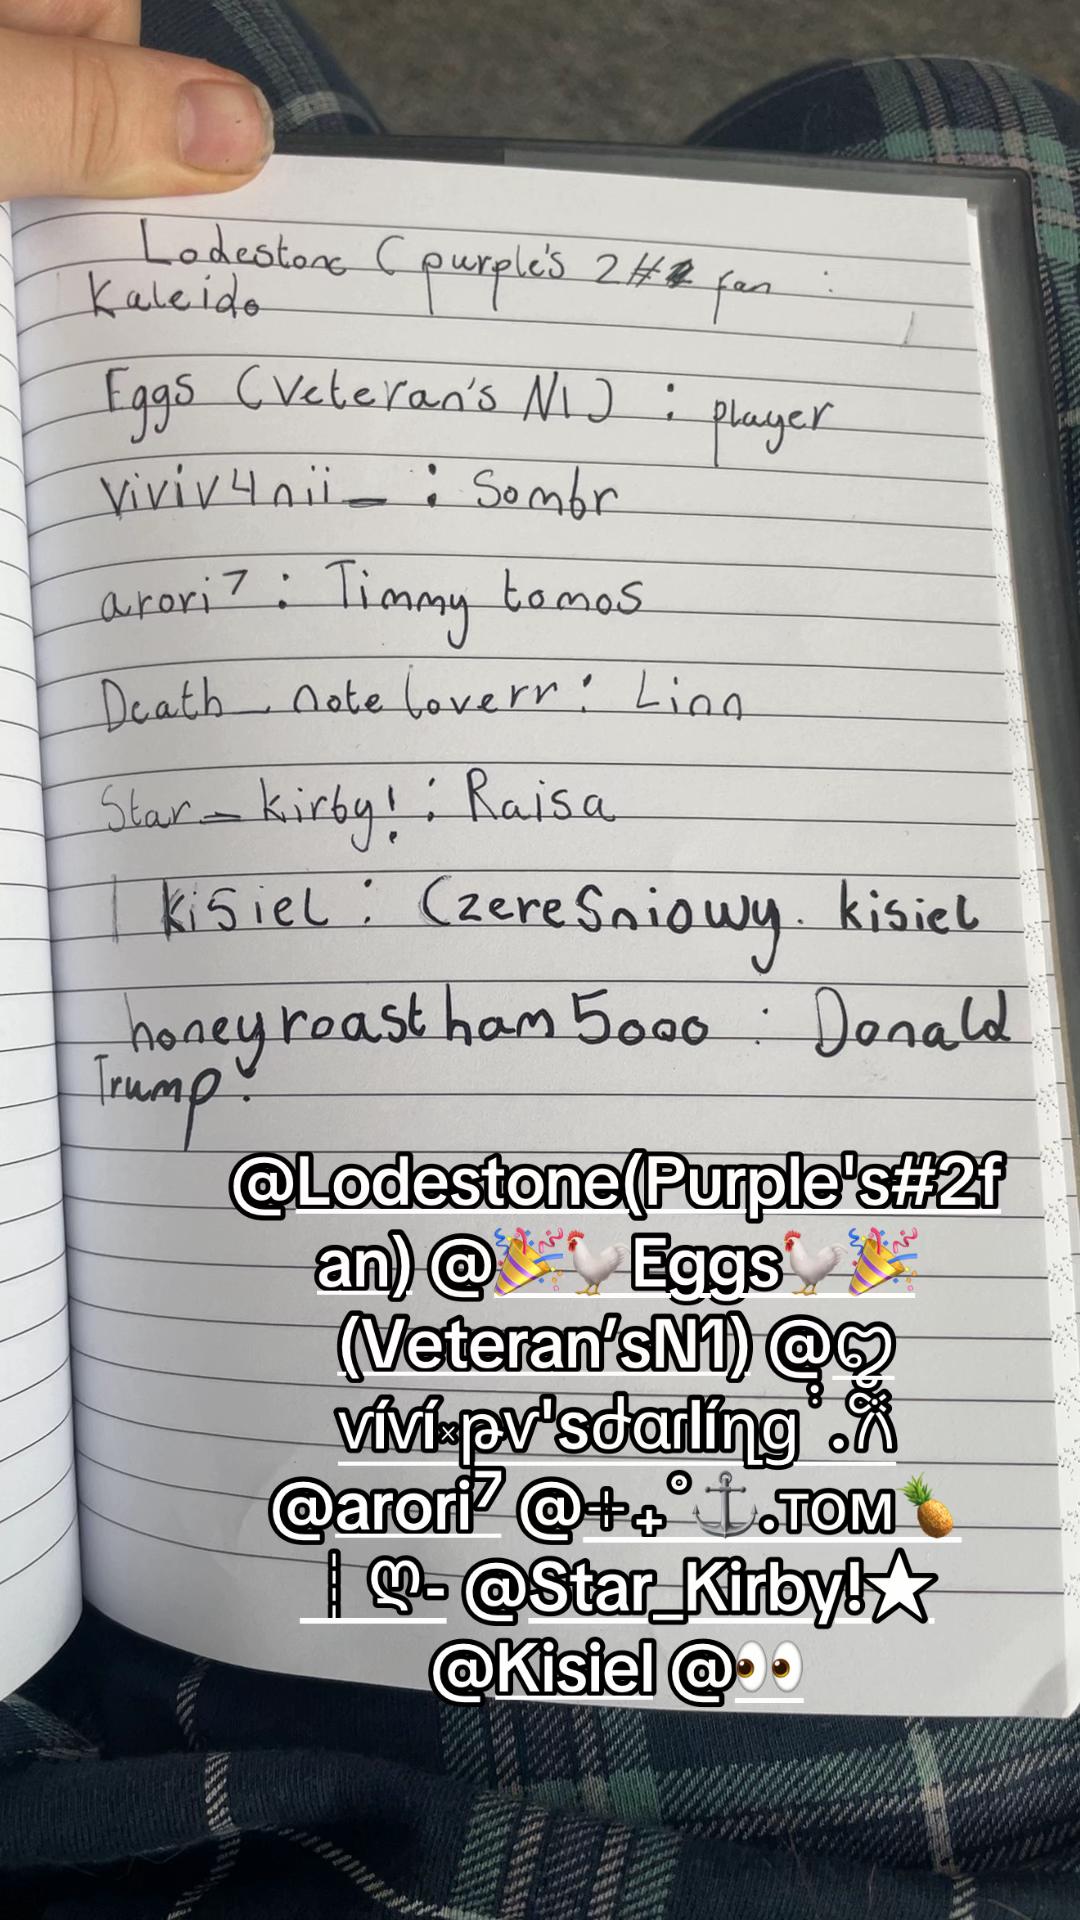 Lodestone (purple's 2# fan :
Kaleido
Eggs (Veteran's N1) : player
Viviv4nii_ : Sombr
arori⁷ : Timmy tomos
Death_note loverr : Linn
Star_kirby! : Raisa
kisiel : Czereśniowy. kisiel
honeyroastham5000 : Donald
Trump.
@Lodestone(Purple's#2f
an) @🎉🐓Eggs🐓🎉
(Veteran’sN1) @ღ
víví
@arori⁷ @⊹₊˚⚓.ᴛᴏᴍ🍍
┊ღ- @Star_Kirby!★
@Kisiel @👀